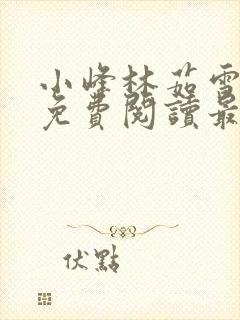 小峰林茹雪
免費閱讀最
伏點